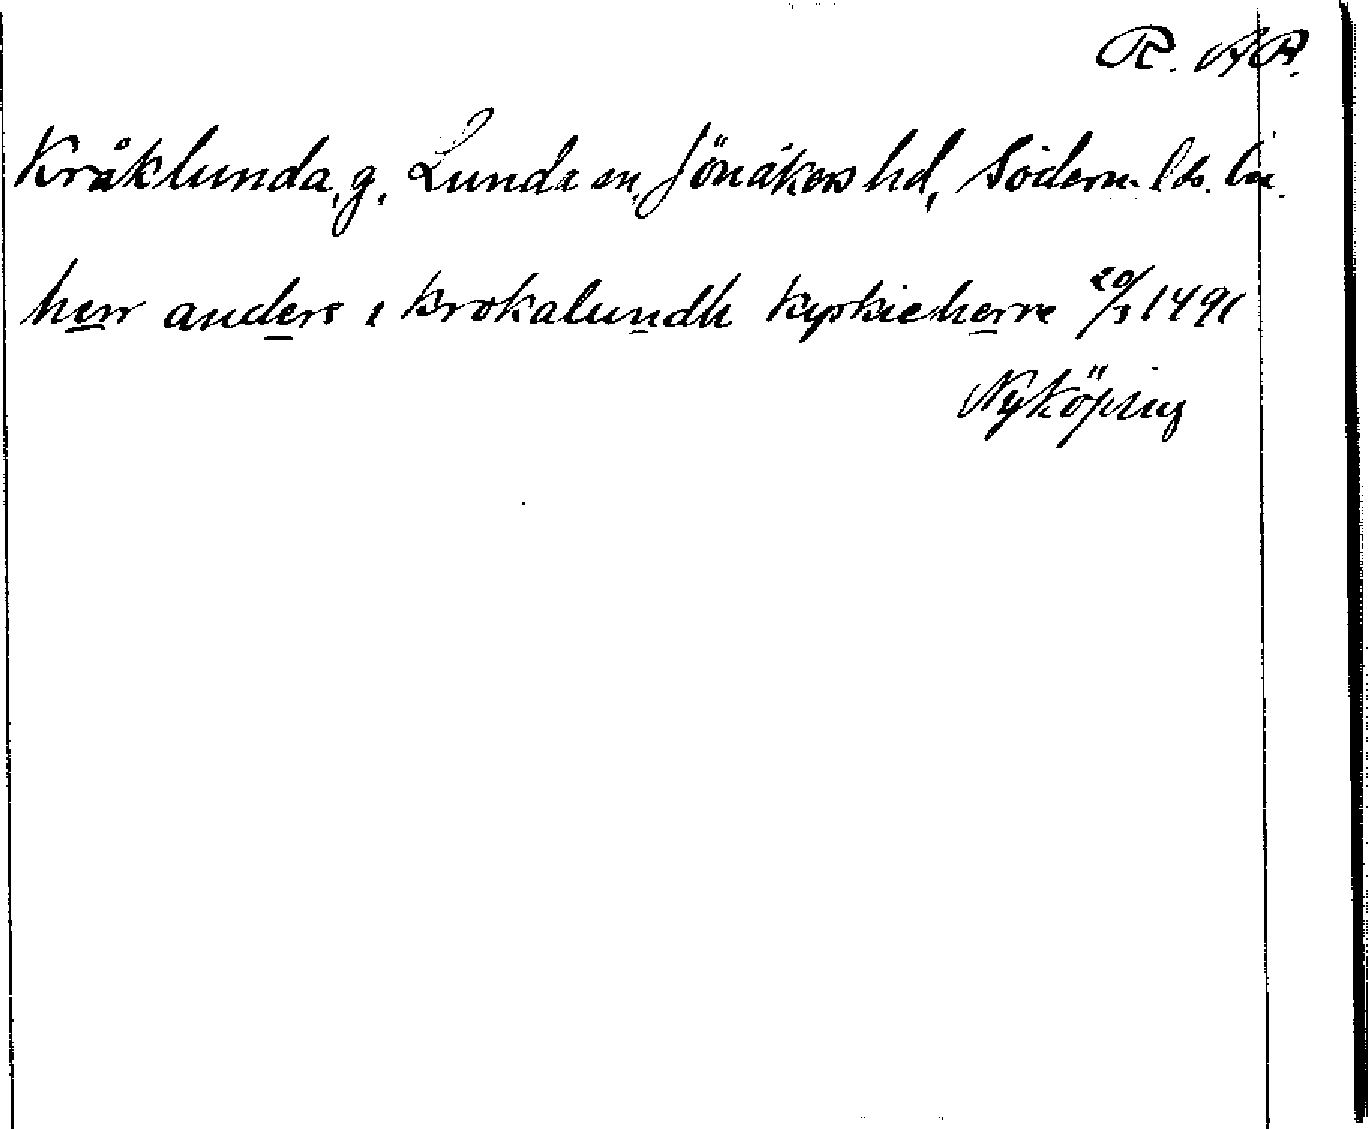 R. AP.
Kråklunda, g. Lunda sn, Jönåkers hd, Söderm. lds. län.
herr anders i krokalundh kyrkieherre 20/3 1491
Nyköping